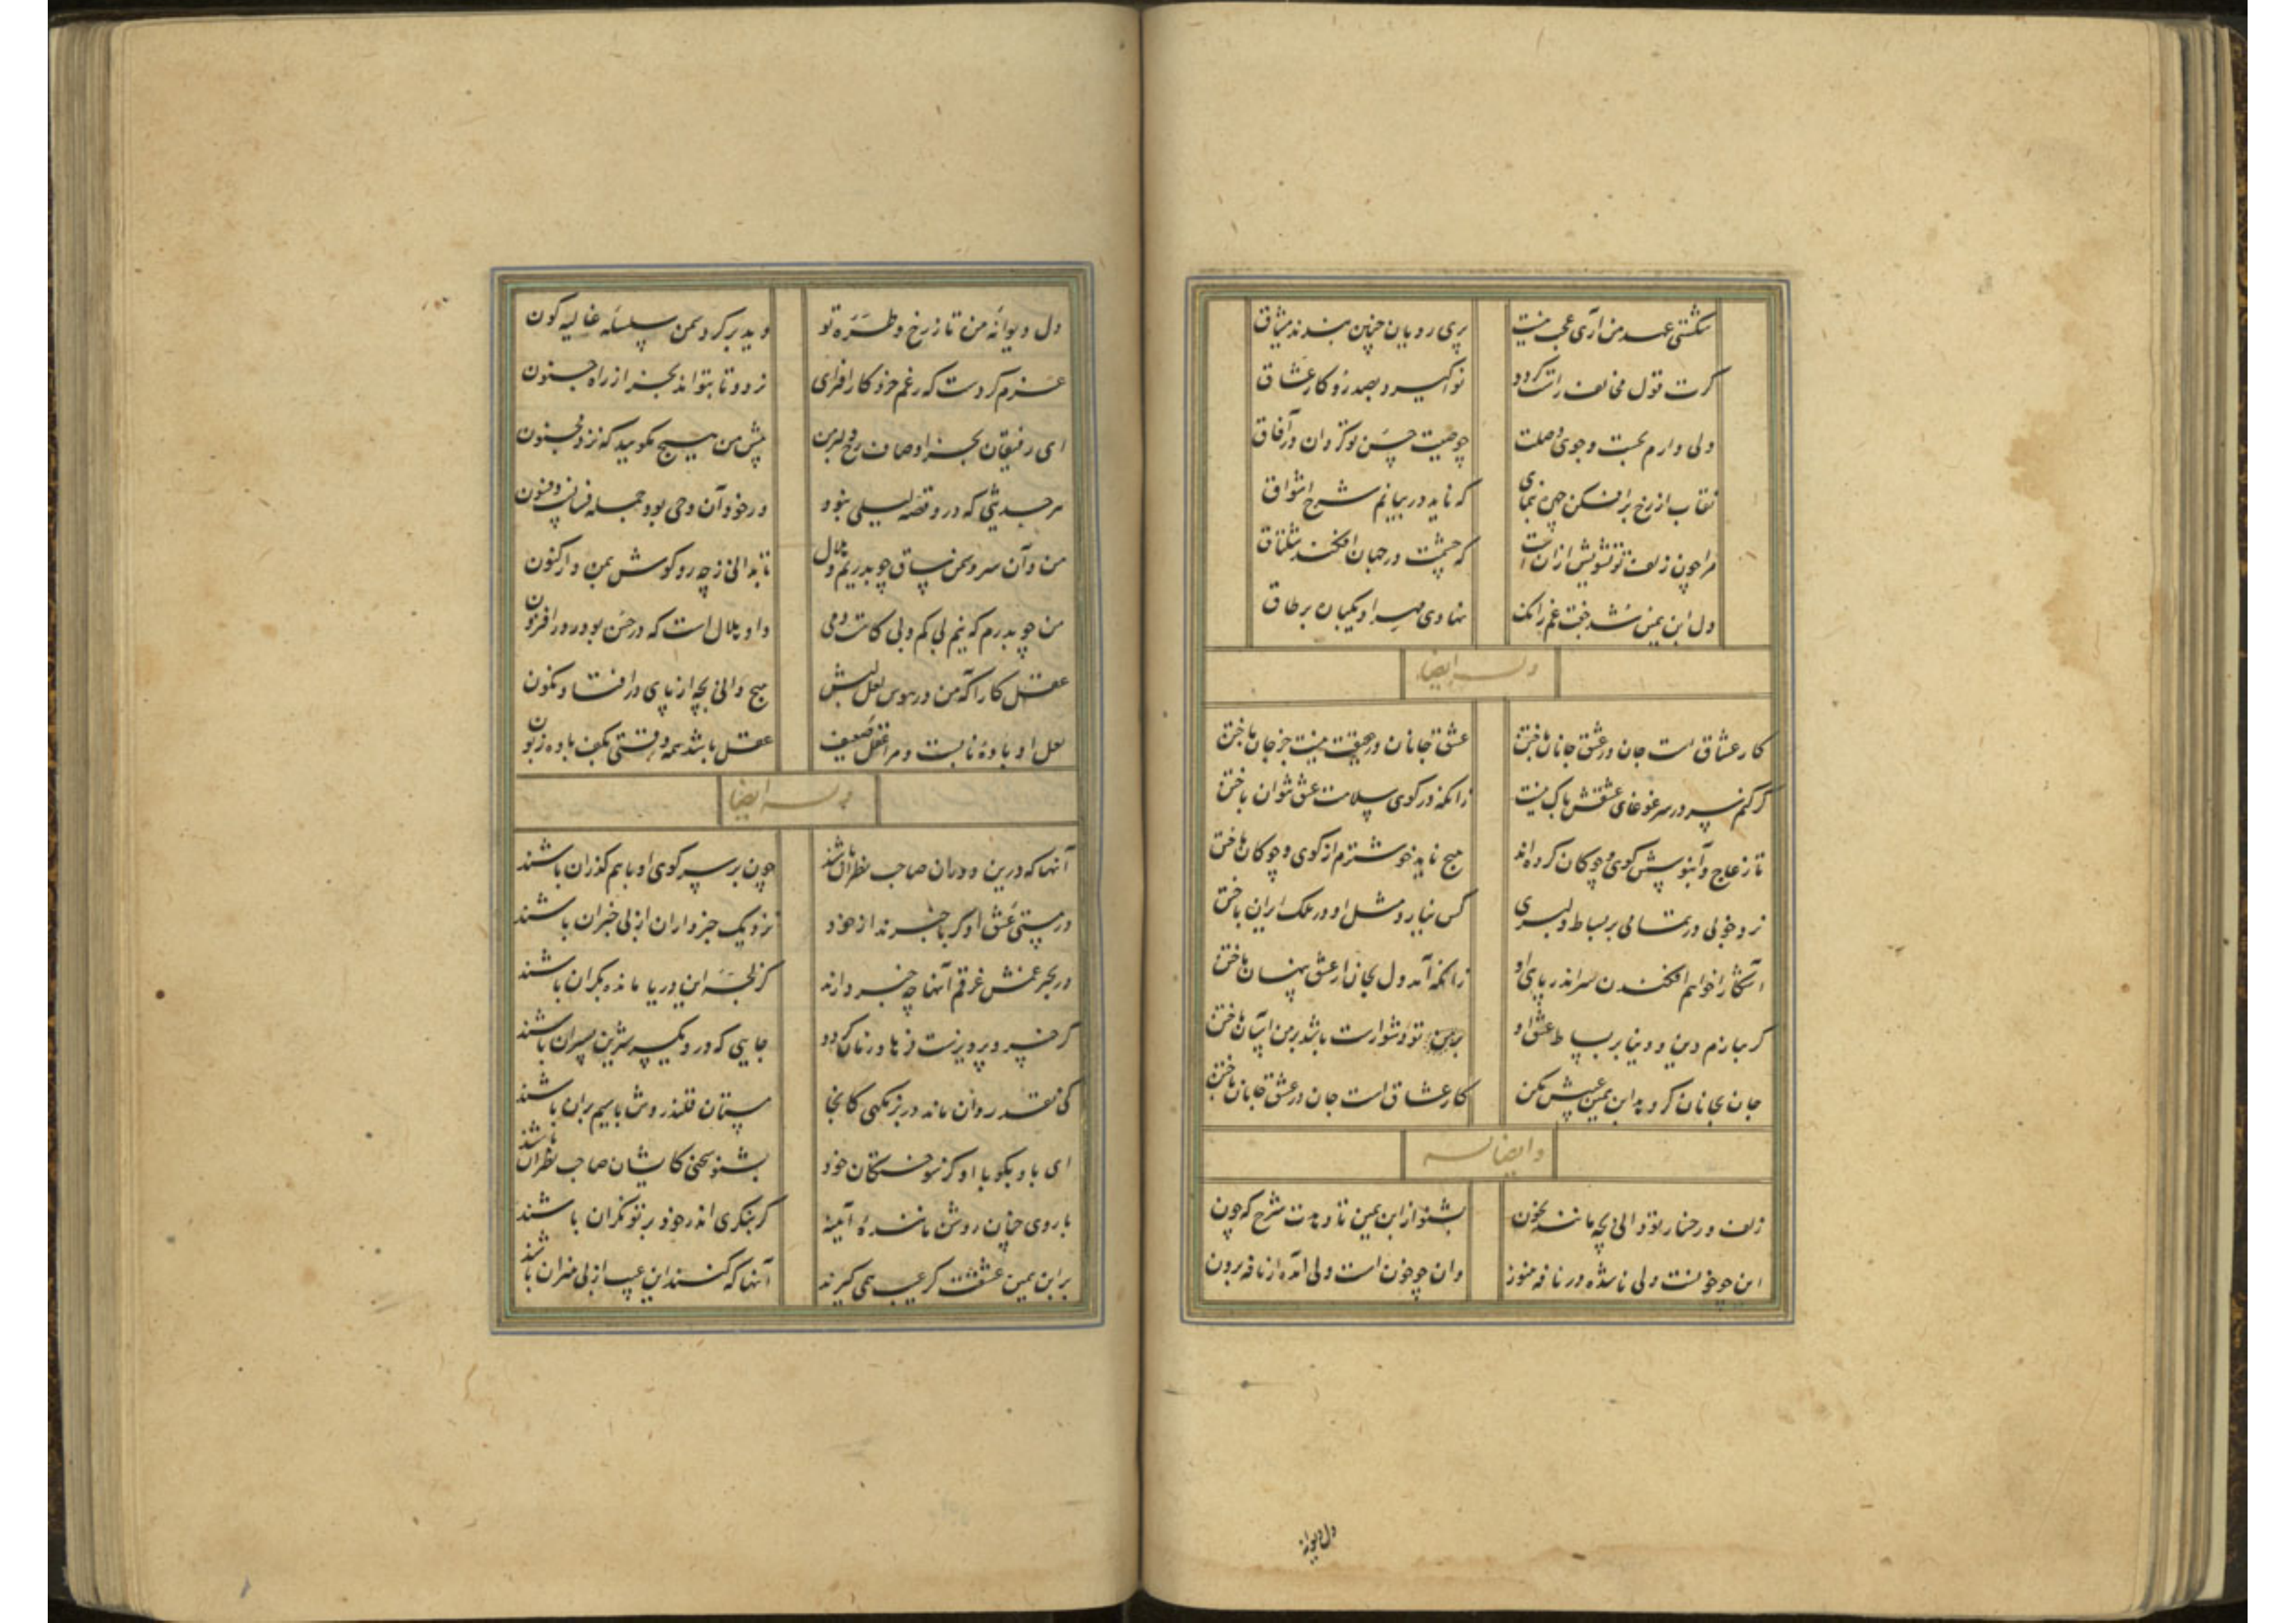 شکستی عهد من آری عجب نیست پری رویان چنین بندند میثاق
کرت قول مخالف راست کردد نوا کیرد بصد رو کار عشاق
ولی دارم بجست و جوی وصلت چو صیت حسن تو کردان در آفاق
نقاب از رخ برافکن چون نمای که ناید در بیانم شرح اشواق
مرا چون زلف تو تشویش از آن است که چشمت در جهان افکند شلتاق
دل ابن یمین شد جفت غم زانک نهادی مهر او یکبار بر طاق
وله ایضا
کار عشاق است جان در عشق جانان باختن عشق جانان در حقیقت نیست جز جان باختن
کر کنم سر در سر غوغای عشقش باک نیست زانکه در کوی سلامت عشق نتوان باختن
تا ز عاج و آبنوسش کوی و چوکان کرده‌اند هیچ ناید خوشترم از کوی و چوکان باختن
نرد خوبی در تمامی بر بساط دلبری کس نیارد مثل او در ملک ایران باختن
آشکارا خواهم افکندن سر اندر پای او زانکه آمد دل بجان از عشق پنهان باختن
کر ببازم دین و دنیا بر بساط عشق او بر تو دشوارست باشد بر من آسان باختن
جان بجانان کرد بد ابن یمین عیبش مکن کار عشاق است جان در عشق جانان باختن
وایضا له
زلف و رخسار تو دانی بچه مانند بخون بشنو از ابن یمین تا دهدت شرح که چون
این چو خونست ولی ناشده در نافه هنوز وان چو خون است ولی آمده از نافه برون
دل دیوانه
دل دیوانه من تا ز رخ و طره تو دید بر کرد سمن سلسله غالیه کون
عزم کردست که رغم خرد کار افزای نرود تا بتواند بجز از راه جنون
ای رفیقان بجز اوصاف رخ دلبر من پیش من هیچ مکویید که نزد مجنون
هر حدیثی که درو قصه لیلی نبود در خور آن وحی بود جمله فسانه و فسون
من و آن سرو سمن ساق چو بدریم و هلال تا بدانی ز چه رو کوش بمن دار کنون
من چو بدرم که نیم بی کم و بی کاست دمی و او هلال است که در حسن بود روز افزون
عقل کار آکه من در هوس لعل لبش هیچ دانی بچه از پای درافتاد و نکون
لعل او باده نابست و مرا عقل ضعیف عقل باشد همه وقتی بکف باده زبون
وله ایضا
آنها که درین دوران صاحب نظران باشند چون بر سر کوی او باهم کذران باشند
در مستی عشق او کر باخبرند از خود نزدیک خبرداران از بی خبران باشند
در بحر غمش غرقم آنها چه خبر دارند کز لجه این دریا مانده بکران باشند
کر خسرو پرویزست فرهاد زمان کردد جایی که درو یکسر شیرین پسران باشند
کی نقد روان ماند در بزمکهی کانجا مستان قلندروش با سیم بران باشند
ای باد بکو با او کز سوختکان خود بشنو سخنی کایشان صاحب نظران باشند
با روی چنان روشن مانند آیینه کر بنکری اندر خود بر تو نکران باشند
بر ابن یمین عشقت کر عیب همی کیرند آنها که کنند این عیب از بی هنران باشند